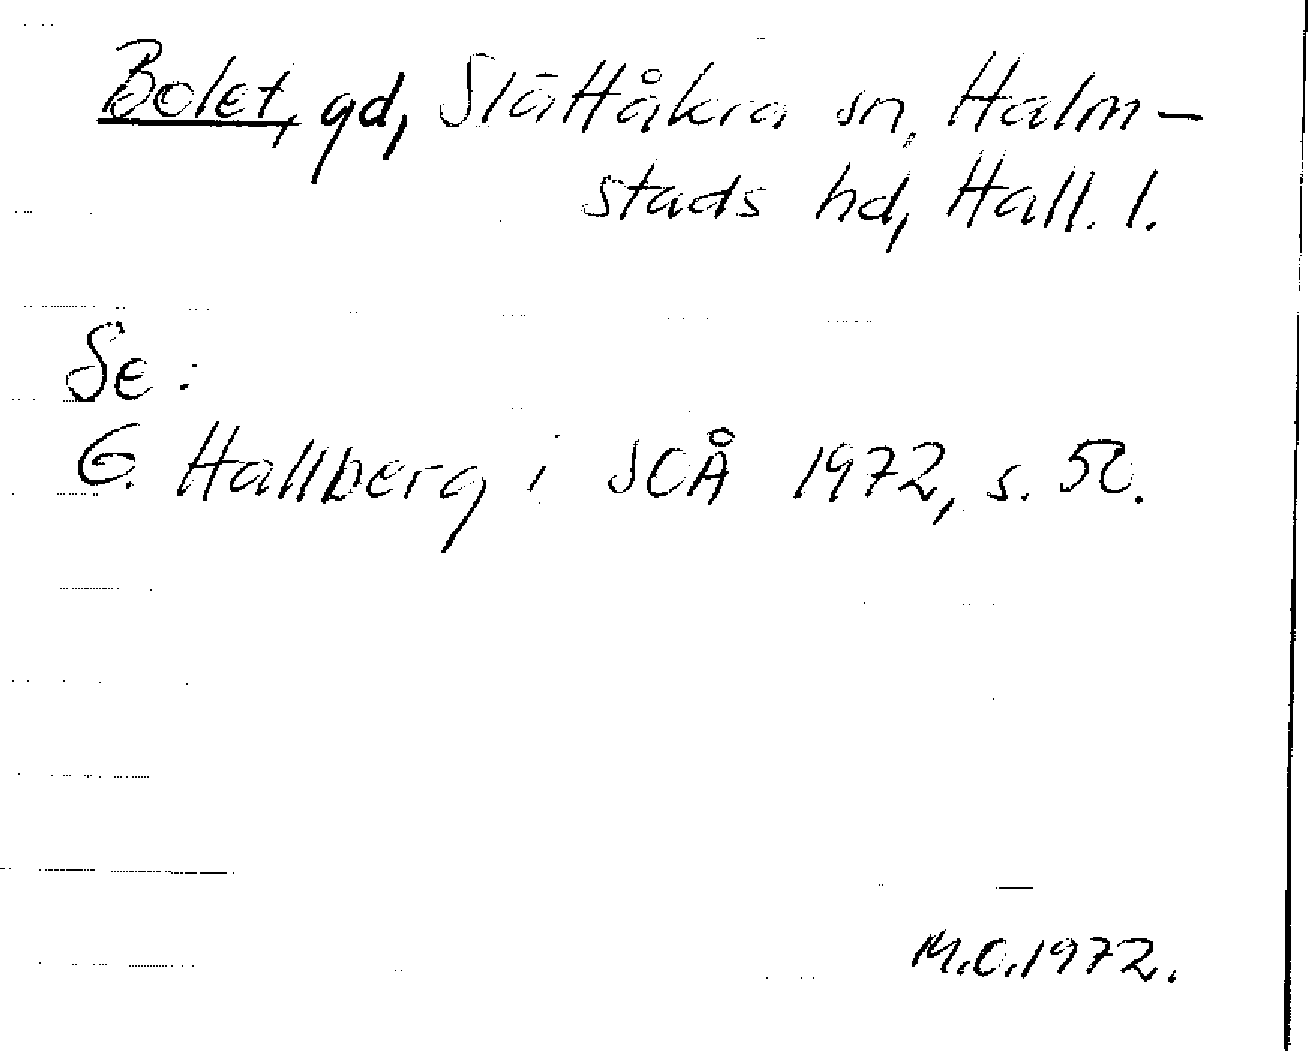 Bolet, gd, Slättåkra sn, Halm-
stads hd, Hall. l.
Se:
G. Hallberg i SOÅ 1972, s. 52.
M.O.1972.